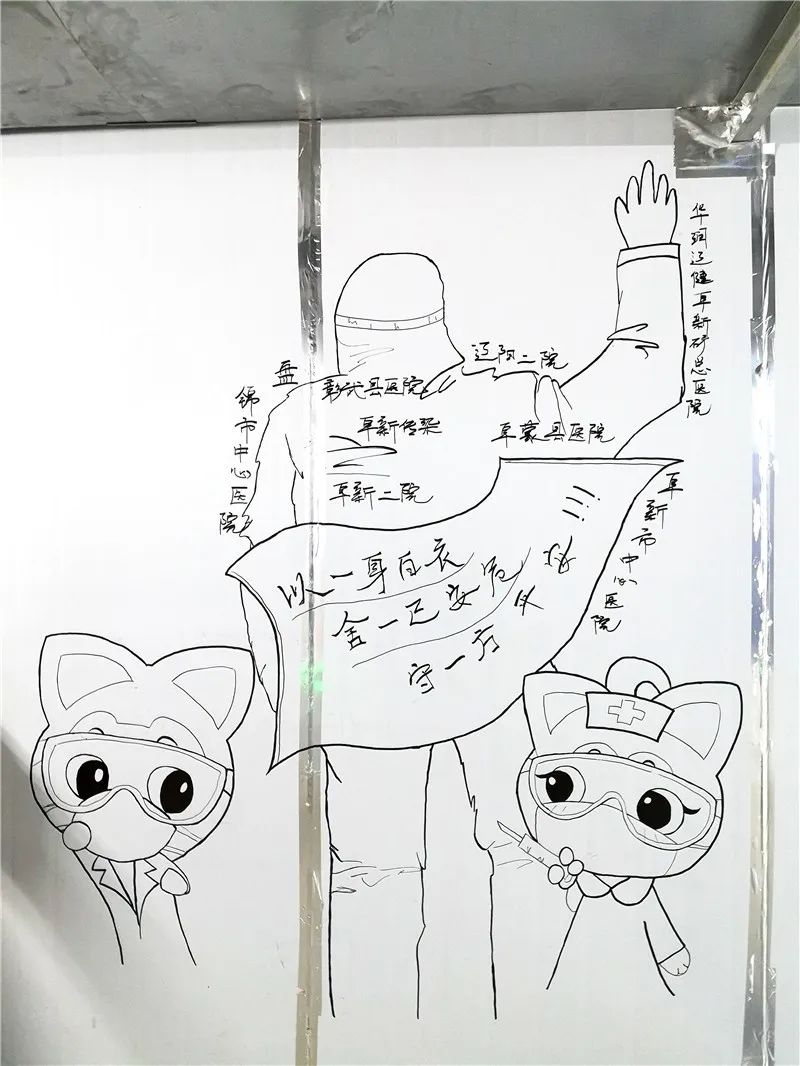 华润辽健阜新矿总医院
辽阳二院
盘
彰武县医院
锦市中心医院
阜新传染
阜蒙县医院
阜新二院
阜新市中心医院
以一身白衣
舍一己安危
守一方